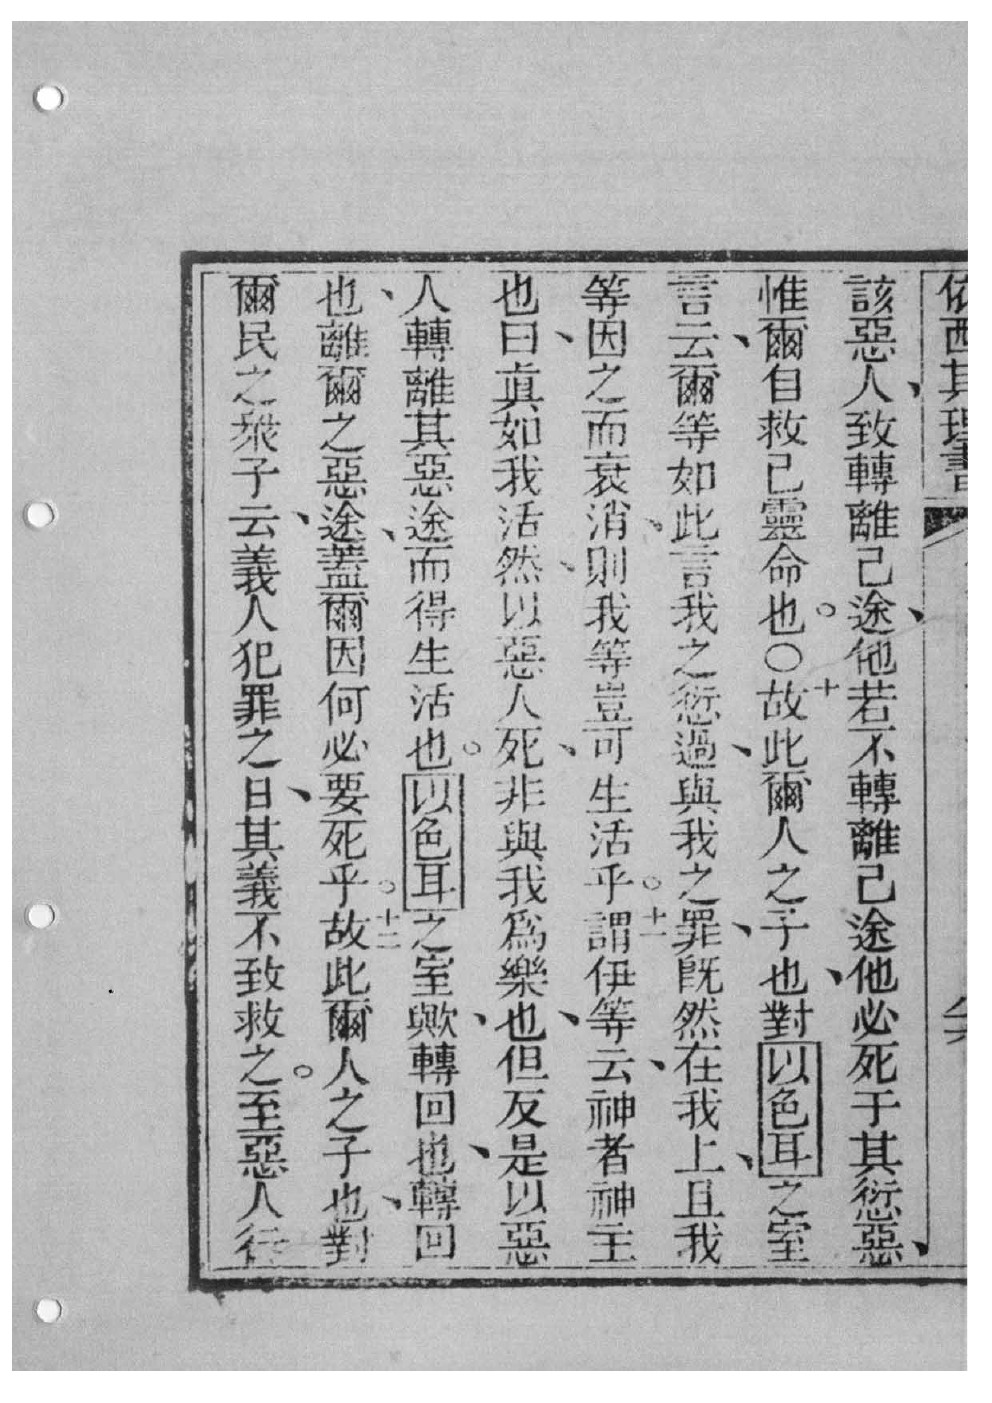 依西其理書
該惡人、致轉離己途、他若不轉離己途、他必死于其愆惡、
惟爾自救己靈命也。〇十故此爾人之子也、對以色耳之室
言云、爾等如此言我之愆過、與我之罪、旣然在我上、且我
等因之而衰消、則我等豈可生活乎。十一謂伊等云、神者神主
也曰、眞如我活然、以惡人死、非與我爲樂也、但反是以惡
人轉離其惡途、而得生活也。以色耳之室歟、轉回也、轉回
也、離爾之惡途、蓋爾因何必要死乎。十二故此爾人之子也、對
爾民之衆子云、義人犯罪之日、其義不致救之。至惡人行